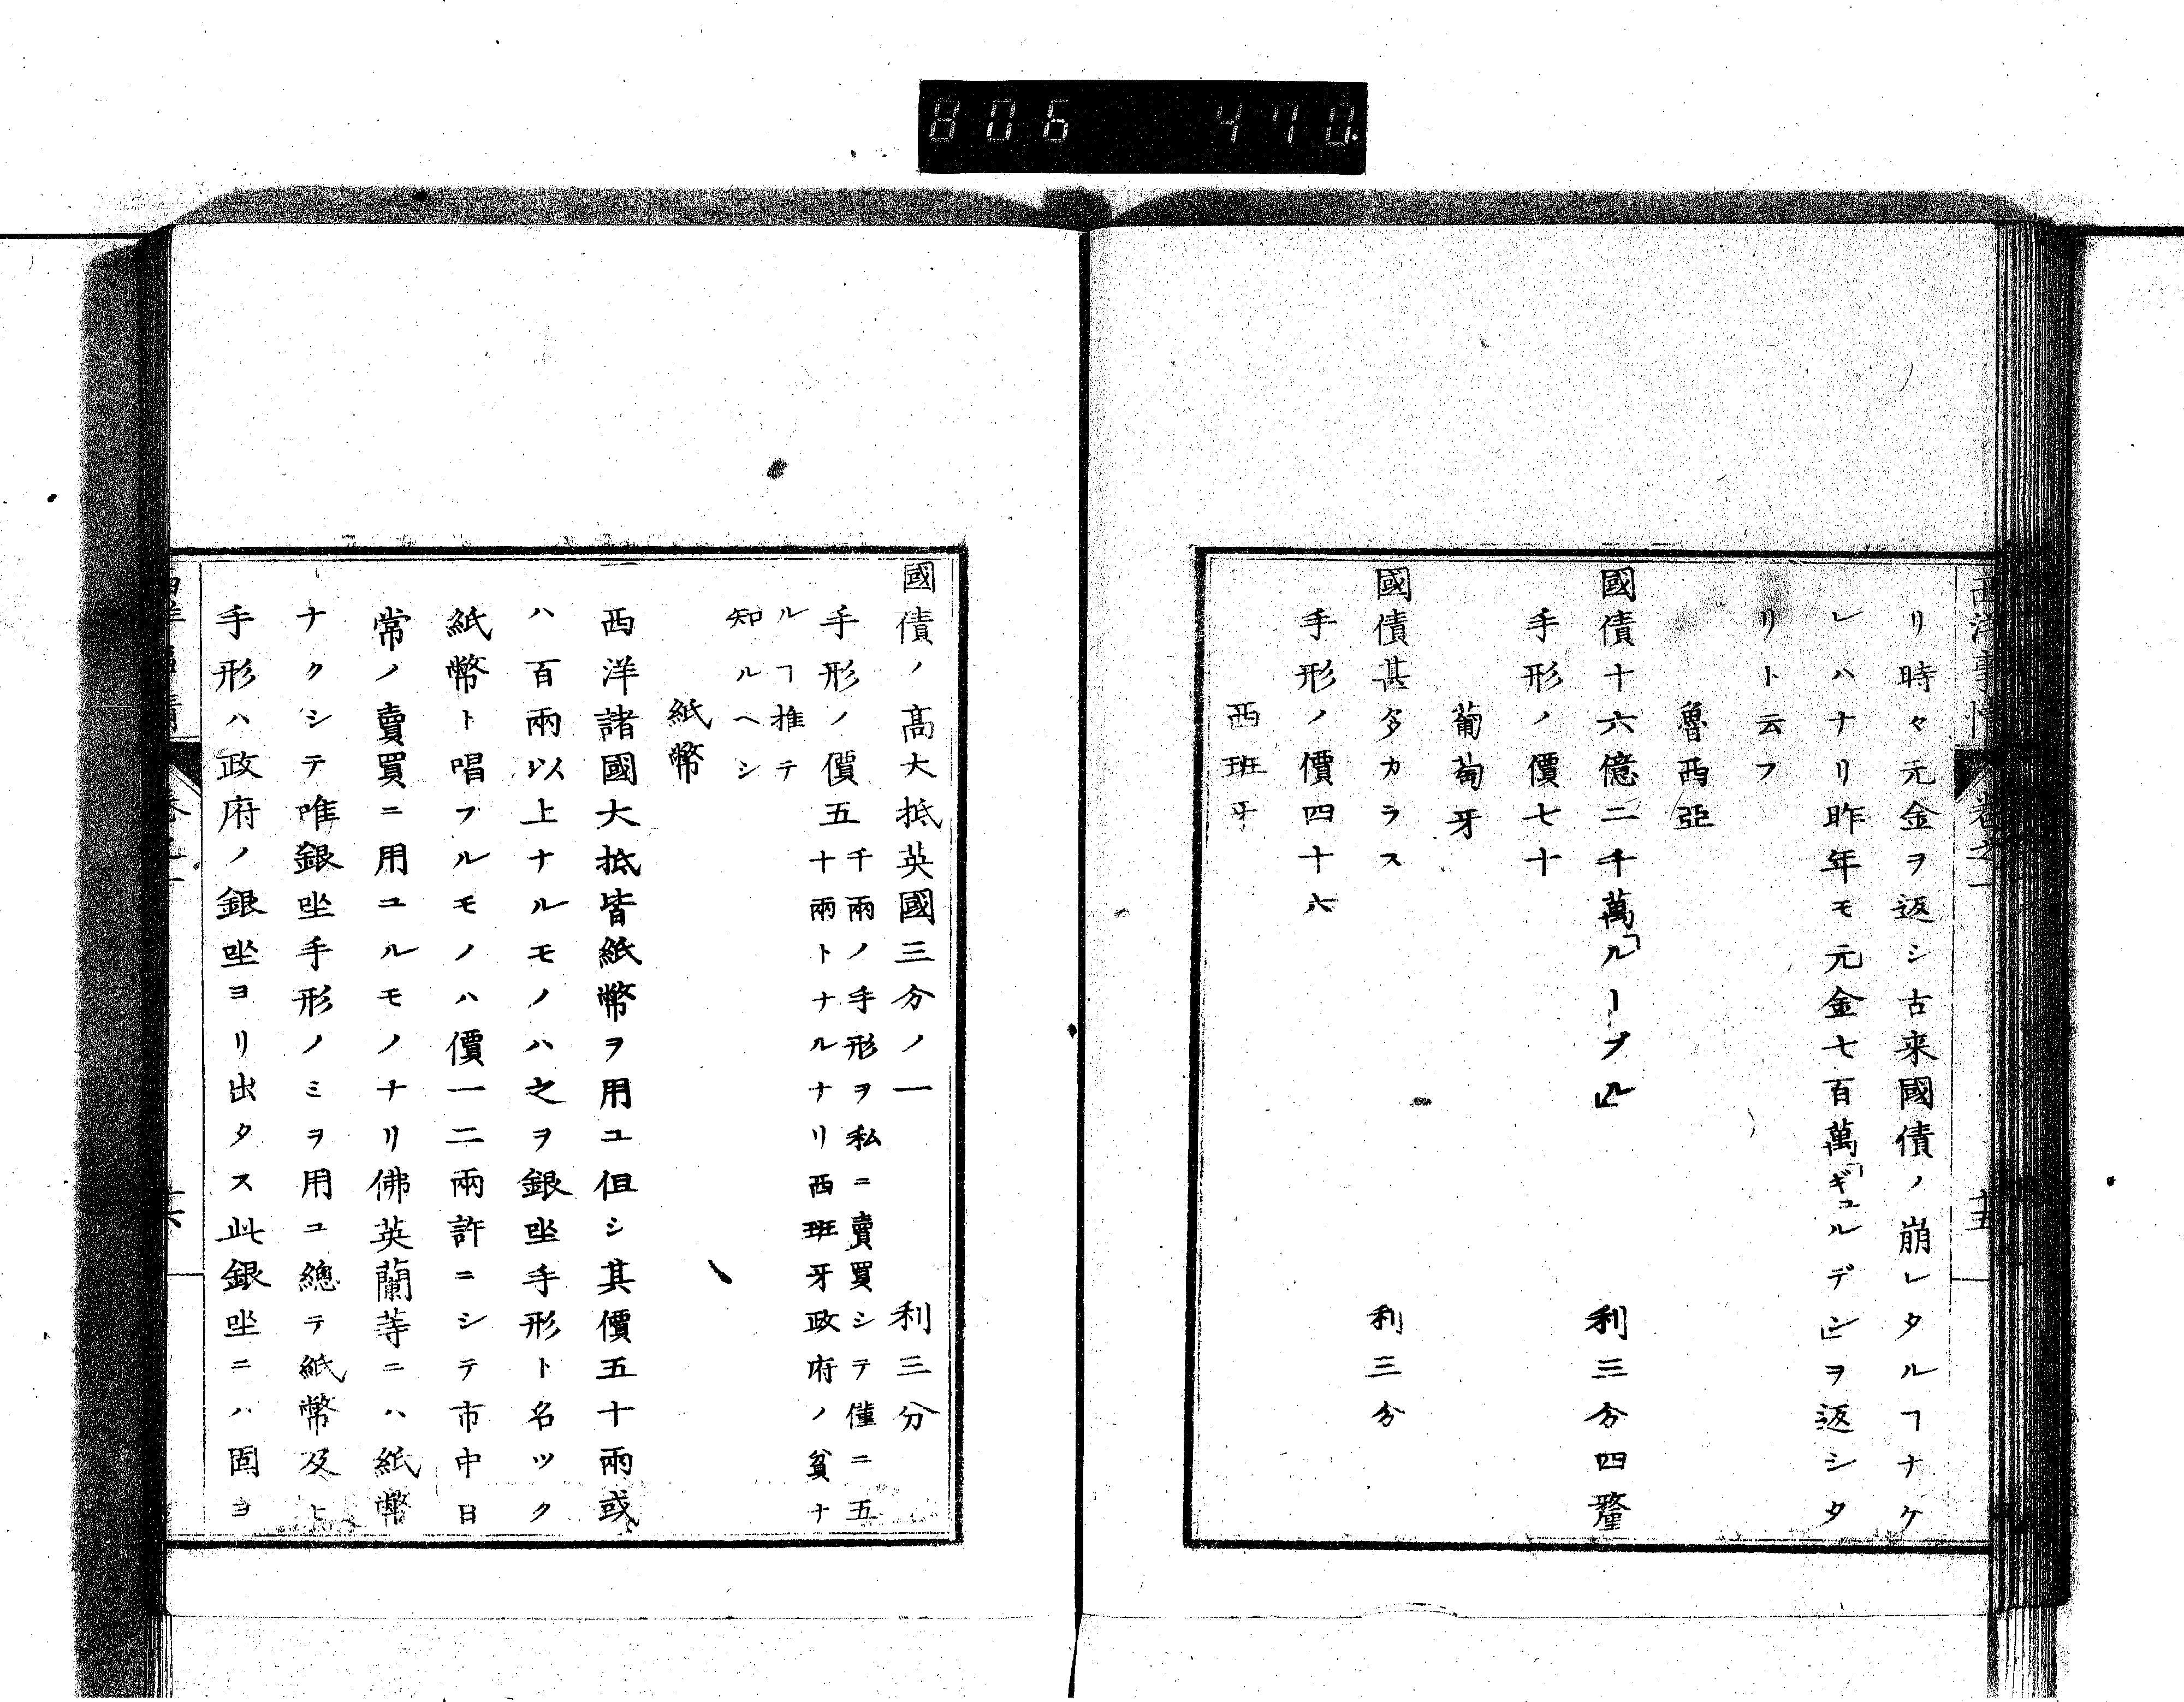 806 470
西洋事情 卷之一 十五
リ時々元金ヲ返シ古来國債ノ崩レタルヿナケ
レハナリ昨年モ元金七百萬「ギュルデン」ヲ返シタ
リト云フ
魯西亞
國債十六億二千萬「ルーブル」 利三分四釐
手形ノ價七十
葡萄牙
國債甚タ多カラス 利三分
手形ノ價四十六
西班牙
國債ノ高大抵英國三分ノ一 利三分
手形ノ價五 千兩ノ手形ヲ私ニ賣買シテ僅ニ五
十兩トナルナリ西班牙政府ノ貧ナ
ルヿ推テ
知ルヘシ
紙幣
西洋諸國大抵皆紙幣ヲ用ユ但シ其價五十兩或
ハ百兩以上ナルモノハ之ヲ銀坐手形ト名ツク
紙幣ト唱フルモノハ價一二兩許ニシテ市中日
常ノ賣買ニ用ユルモノナリ佛英蘭等ニハ紙幣
ナクシテ唯銀坐手形ノミヲ用ユ總テ紙幣及ヒ
手形ハ政府ノ銀坐ヨリ出タス此銀坐ニハ固ヨ